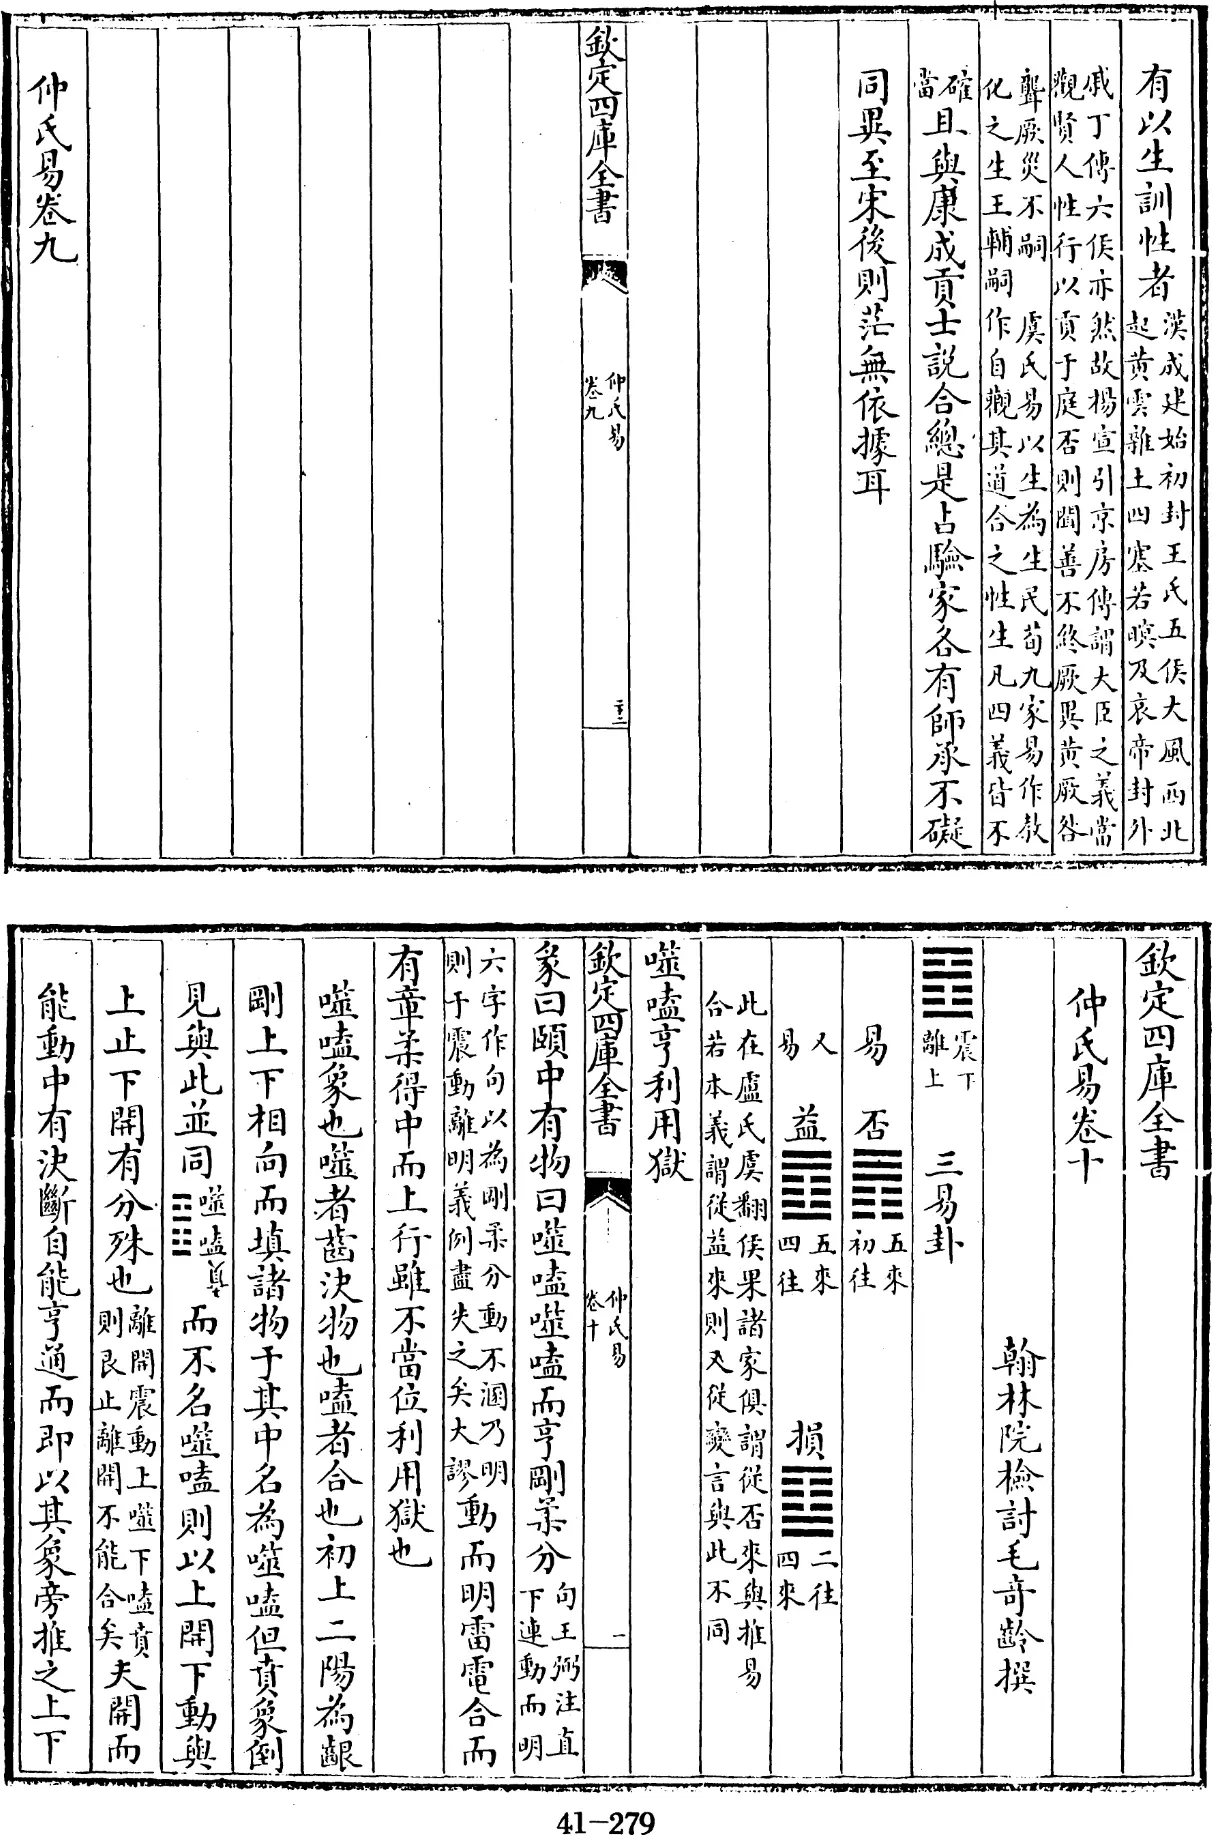 有以生訓性者漢成建始初封王氏五侯大風西北
起黄雲雜土四塞若暝及哀帝封外
戚丁傅六侯亦然故楊宣引京房傳謂大臣之義當
觀賢人性行以貢于庭否則聞善不終厥異黄厥咎
聾厥災不嗣 虞氏易以生為生民荀九家易作教
化之生王輔嗣作自觀其道合之性生凡四義皆不
確當且與康成貢士説合總是占驗家各有師承不礙
同異至宋後則茫無依據耳
欽定四庫全書
仲氏易
卷九
二十二
仲氏易卷九
欽定四庫全書
仲氏易卷十
翰林院檢討毛奇齡撰
䷔ 震下
離上 三易卦
易 否䷋ 五來
初往
又
易 益䷩ 五來
四往 損䷨ 二往
四來
此在盧氏虞翻侯果諸家俱謂從否來與推易
合若本義謂從益來則又從變言與此不同
噬嗑亨利用獄
欽定四庫全書
仲氏易
卷十
一
彖曰頤中有物曰噬嗑噬嗑而亨剛柔分句王弼注直
下連動而明
六字作句以為剛柔分動不溷乃明
則于震動離明義例盡失之矣大謬動而明雷電合而
有章柔得中而上行雖不當位利用獄也
噬嗑象也噬者齒決物也嗑者合也初上二陽為齦
剛上下相向而填諸物于其中名為噬嗑但賁象倒
見與此並同噬嗑䷔而不名噬嗑則以上開下動與
上止下開有分殊也離開震動上噬下嗑賁
則艮止離開不能合矣夫開而
能動中有決斷自能亨通而即以其象旁推之上下
41-279